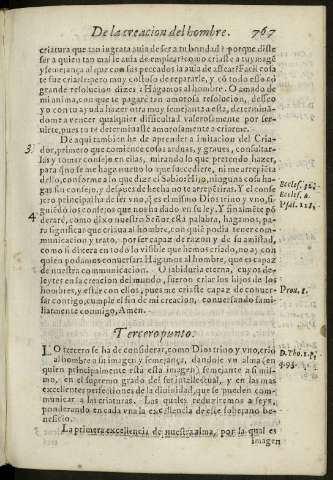 De la creacion del hombre. 767
criatura que tan ingrata auia de ser a tu bondad? porque diste
ser a quien tan mal le auia de emplear? como criaste a tu imagē
y semejança al que con sus peccados la auia de afear? Facil cosa
te fue criarle, pero muy costoso de repararle, y cō todo esso cō
grande resolucion dizes: Hagamos al hombre. O amado de
mi anima, con que te pagarè tan amorosa resolucion, desseo
yo con tu ayuda hazer otra muy semejante a esta, determinā-
dome a vencer qualquier difficultad valerosamente por ser-
uirte, pues tu te determinaste amorosamente a criarme.
3. De aqui tambien he de aprender a imitacion del Cria-
dor, primero que comience cosas arduas, y graues, consultar-
las y tomar consejo en ellas, mirando lo que pretendo hazer,
para que no se me haga nueuo lo que succediere, ni me arrepiēta
dello, conforme a lo que dize el Sabio: Hijo, ninguna cosa ha-
gas sin consejo, y despues de hecha no te arrepētiras. Y el conse-
jero principal ha de ser vno, q̄ es el mismo Dios trino y vno, si-
guiēdo los consejos que nos ha dado en su ley. Y finalmēte pō-
4. deraré, como dixo nuestro Señor esta palabra, hagamos, pa-
ra significar que criaua al hombre, con quiē podia tener comu-
nicacion y trato, por ser capaz de razon y de su amistad,
como si dixera en todo lo visible que hemos criado, no ay con
quien podamos conuersar: Hagamos al hombre, que es capaz
de nuestra comunicacion. O sabiduria eterna, cuyos de-
leytes en la creacion del mundo, fueron criar los hijos de los
hombres, y estàr con ellos, pues me criaste capaz de conuer-
sar contigo, cumple el fin de mi creacion, conuersando fami-
liarmente conmigo, Amen.
Eccles. 32.
Eccles. 2.
Psal. 118.
Prou. 8.
Tercero punto.
LO tercero se ha de considerar, como Dios trino y vno, criò
al hombre a su imagen y semejança, dandole vn alma (en
quien principalmente està esta imagē) semejante a si mis-
mo, en el supremo grado del ser intelectual, y en las mas
excellentes perfectiones de la diuinidad, que se pueden com-
municar a las criaturas. Las quales reduziremos a seys,
ponderando en cada vna la excelencia de este soberano be-
neficio.
D. Tho. 1. p.
q. 93.
La primera excelencia de nuestra alma, por la qual es
imagen